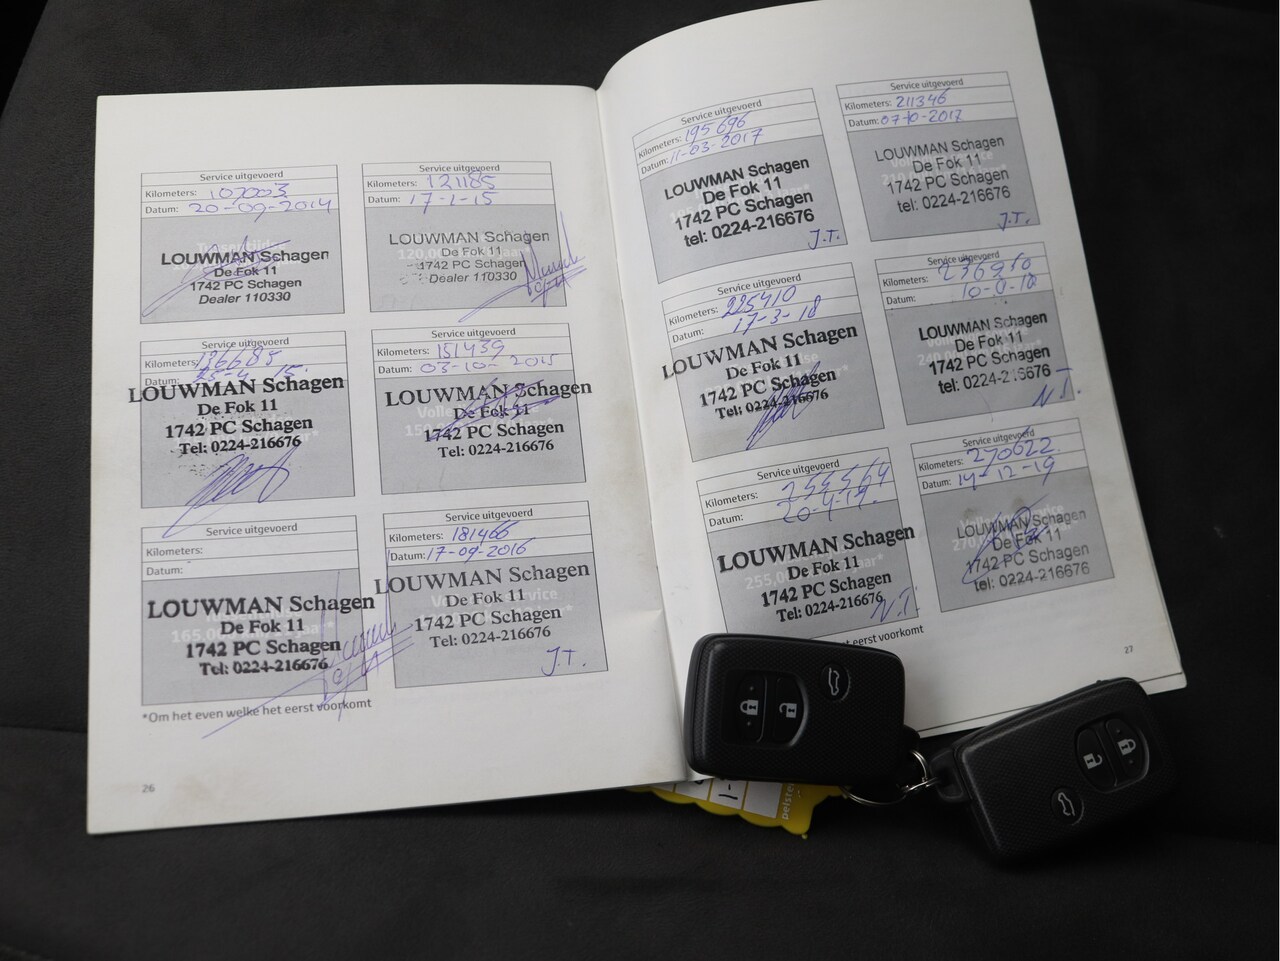 Service uitgevoerd
Kilometers: 107003
Datum: 20-09-2014
LOUWMAN Schagen
De Fok 11
1742 PC Schagen
Dealer 110330
Service uitgevoerd
Kilometers: 121185
Datum: 17-1-15
120.000
LOUWMAN Schagen
De Fok 11
1742 PC Schagen
Dealer 110330
Service uitgevoerd
Kilometers: 136685
Datum: 25-4 15
LOUWMAN Schagen
De Fok 11
1742 PC Schagen
Tel: 0224-216676
Service uitgevoerd
Kilometers: 151439
Datum: 03-10-2015
LOUWMAN Schagen
De Fok 11
1742 PC Schagen
Tel: 0224-216676
Service uitgevoerd
Kilometers:
Datum:
LOUWMAN Schagen
De Fok 11
165.000
1742 PC Schagen
Tel: 0224-216676
Service uitgevoerd
Kilometers: 181466
Datum: 17-09-2016
LOUWMAN Schagen
De Fok 11
1742 PC Schagen
Tel: 0224-216676
J.T.
*Om het even welke het eerst voorkomt
26
Service uitgevoerd
Kilometers: 195696
Datum: 11-03-2017
LOUWMAN Schagen
De Fok 11
1742 PC Schagen
tel: 0224-216676
J.T.
Service uitgevoerd
Kilometers: 211346
Datum: 07-10-2017
LOUWMAN Schagen
De Fok 11
1742 PC Schagen
tel: 0224-216676
J.T.
Service uitgevoerd
Kilometers: 225410
Datum: 17-3-18
LOUWMAN Schagen
De Fok 11
1742 PC Schagen
Tel: 0224-216676
Service uitgevoerd
Kilometers: 236950
Datum:
LOUWMAN Schagen
De Fok 11
240.000
1742 PC Schagen
tel: 0224-216676
N.T.
Service uitgevoerd
Kilometers:
Datum: 20-4-19.
LOUWMAN Schagen
De Fok 11
255.000
1742 PC Schagen
Tel: 0224-216676
N.T.
Service uitgevoerd
Kilometers: 270622
Datum: 14-12-19
LOUWMAN Schagen
De Fok 11
1742 PC Schagen
tel: 0224-216676
het eerst voorkomt
27